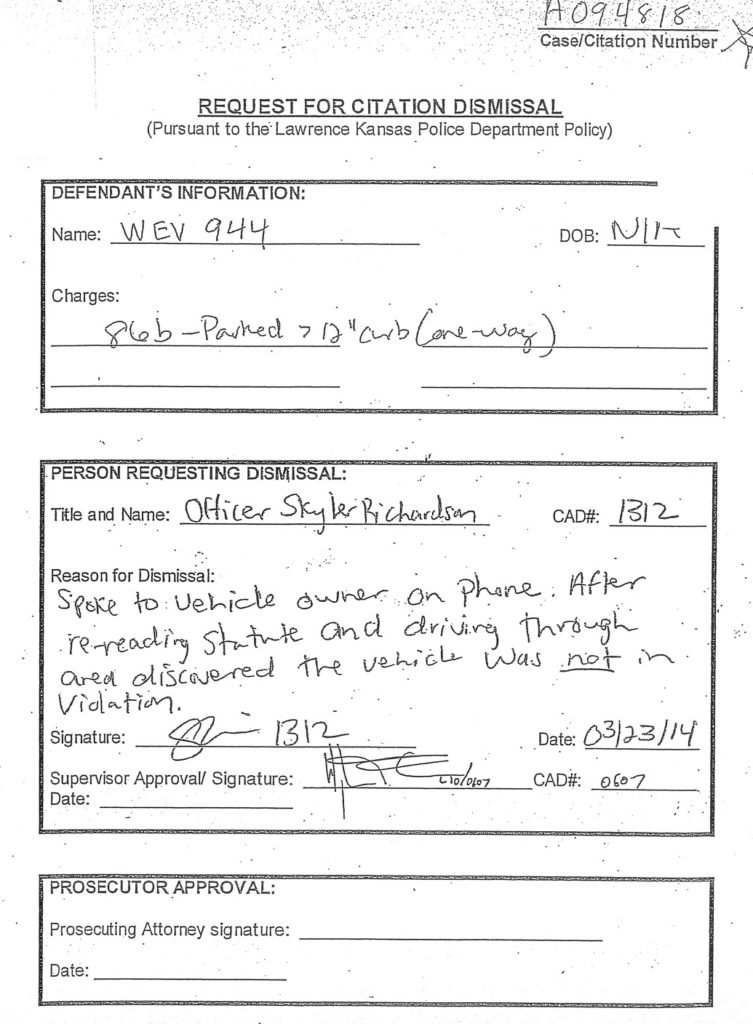 A094818
Case/Citation Number
REQUEST FOR CITATION DISMISSAL
(Pursuant to the Lawrence Kansas Police Department Policy)
DEFENDANT'S INFORMATION:
Name: WEV 944 DOB: N/A
Charges:
86b - Parked > 12" curb (one-way)
PERSON REQUESTING DISMISSAL:
Title and Name: Officer Skyler Richardson CAD#: 1312
Reason for Dismissal:
Spoke to vehicle owner on phone. After
re-reading statute and driving through
area discovered the vehicle was not in
violation.
Signature: 1312 Date: 03/23/14
Supervisor Approval/ Signature: CAD#: 0607
Date:
PROSECUTOR APPROVAL:
Prosecuting Attorney signature:
Date: